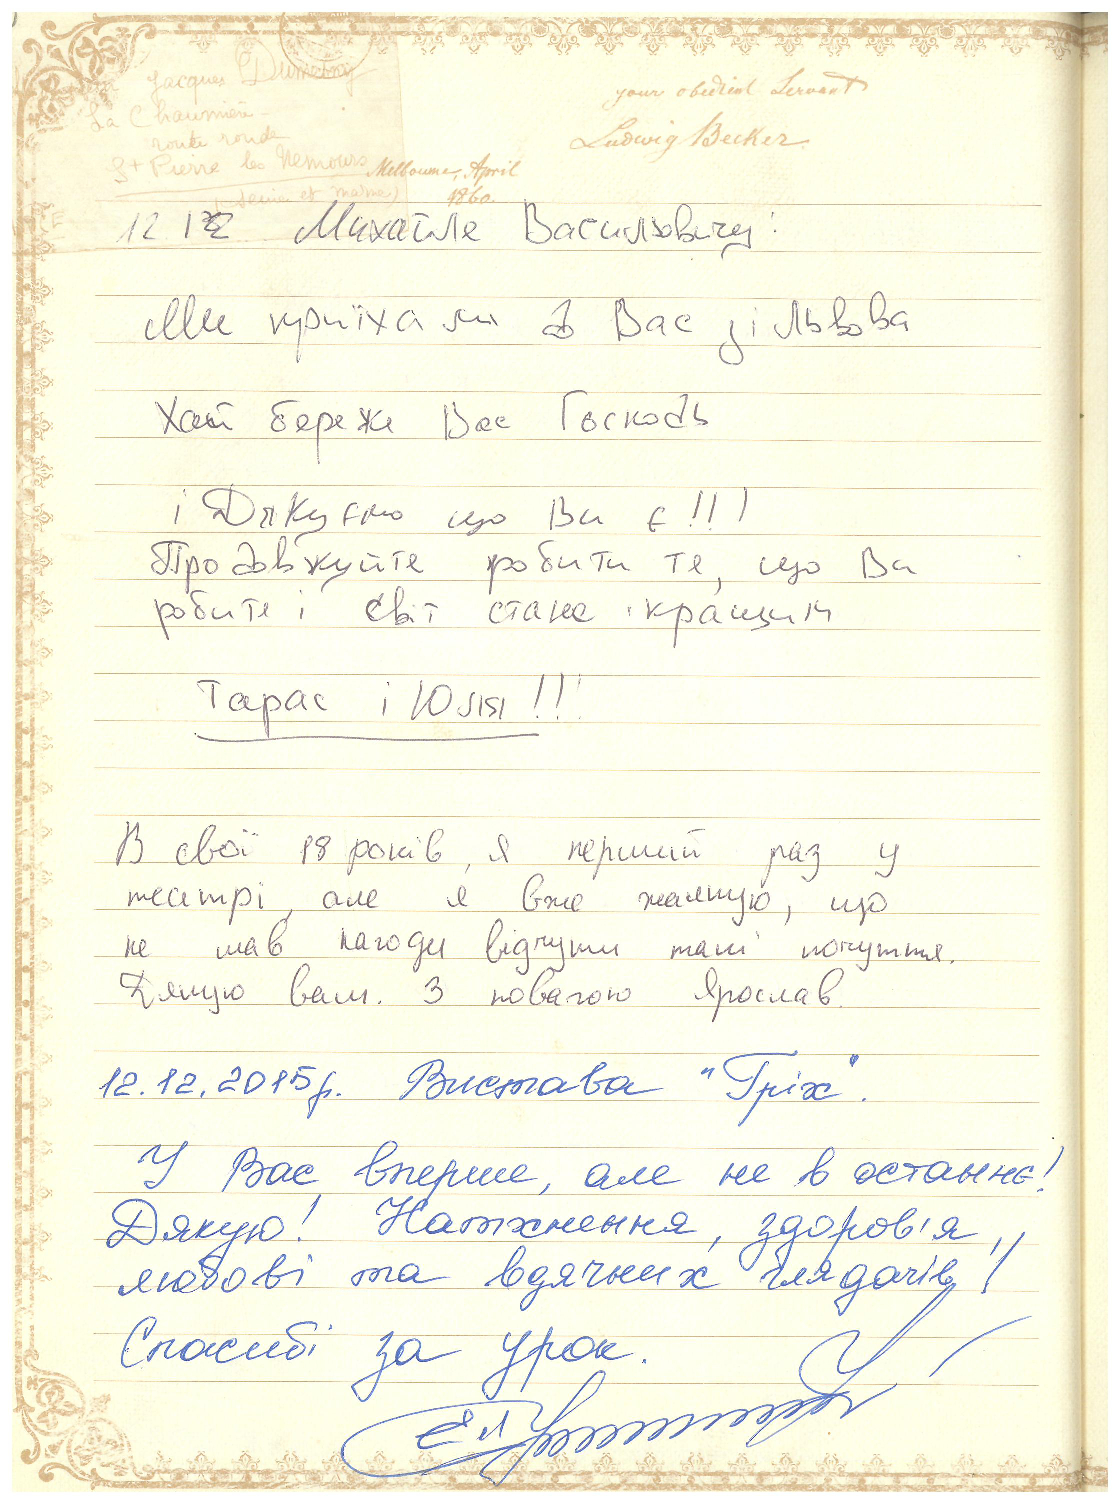 Jacques Dumesny
La Chaumière
route ronde
St Pierre les Nemours
your obedient Servant
Ludwig Becker
Melbourne, April
1860.
12 12 Михайле Васильовичу!
Ми приїхали д Вас зі Львова
Хай береже Вас Господь
і Дякуємо що Ви є!!!
Продовжуйте робити те, що Ви
робите і світ стане кращим
Тарас і Юлія!!!
В свої 18 років, я перший раз у
театрі, але я вже жалкую, що
не мав нагоди відчути такі почуття.
Дякую вам. З повагою Ярослав.
12.12.2015р. Вистава "Гріх".
У Вас вперше, але не в останнє!
Дякую! Натхнення, здоров'я,
любові та вдячних глядачів!
Спасибі за урок.